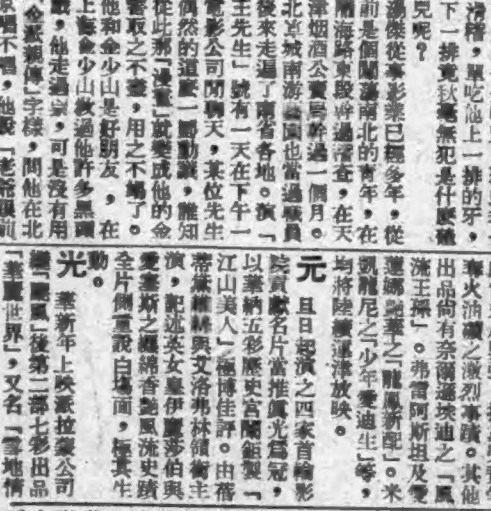 滑稽，單吃他上一排的牙，
下一排竟秋毫無犯是什麼
兒呢？
湯傑從事影業已經多年，從
前是個闖蕩南北的青年，在
海路東段幹過稽查，在天
津烟酒公賣局幹過一個月。
北京城南游藝園也當過職員
後來走遍了南省各地。演「
王先生」號有一天在下午一
電影公司閒聊天，某位先生
偶然的道麼一個動議，誰知
從此那「」就變成他的金
取之不盡，用之不竭了。
他和金少山是好朋友，在
上海金少山教過他許多黑頭
戲，他走過票，可是沒有用
「金派親傳」字樣，問他在北
京唱不唱，他說「老爺跟前
奪火油礦之激烈事蹟。其他
出品尚有奈爾遜埃迪之「風
流王孫」。弗雷阿斯坦及愛
蓮娜鮑華之「龍鳳新配」。米
凱龍尼之「少年愛迪生」等，
均將陸續運津放映。
元 旦日起演之四家首輪影
院賀歲名片當推真光為冠，
以華納五彩歷史宮闈鉅製「
江山美人」之極博佳評。由蓓
蒂黛維絲與艾洛弗林領銜主
演，記述英女皇伊麗莎伯與
愛塞斯之纏綿香艷風流史蹟
全片側重說白場面，極其生
動。
光 華新年上映派拉蒙公司
繼「颶風」後第二部七彩出品
「華麗世界」，又名「雪地情